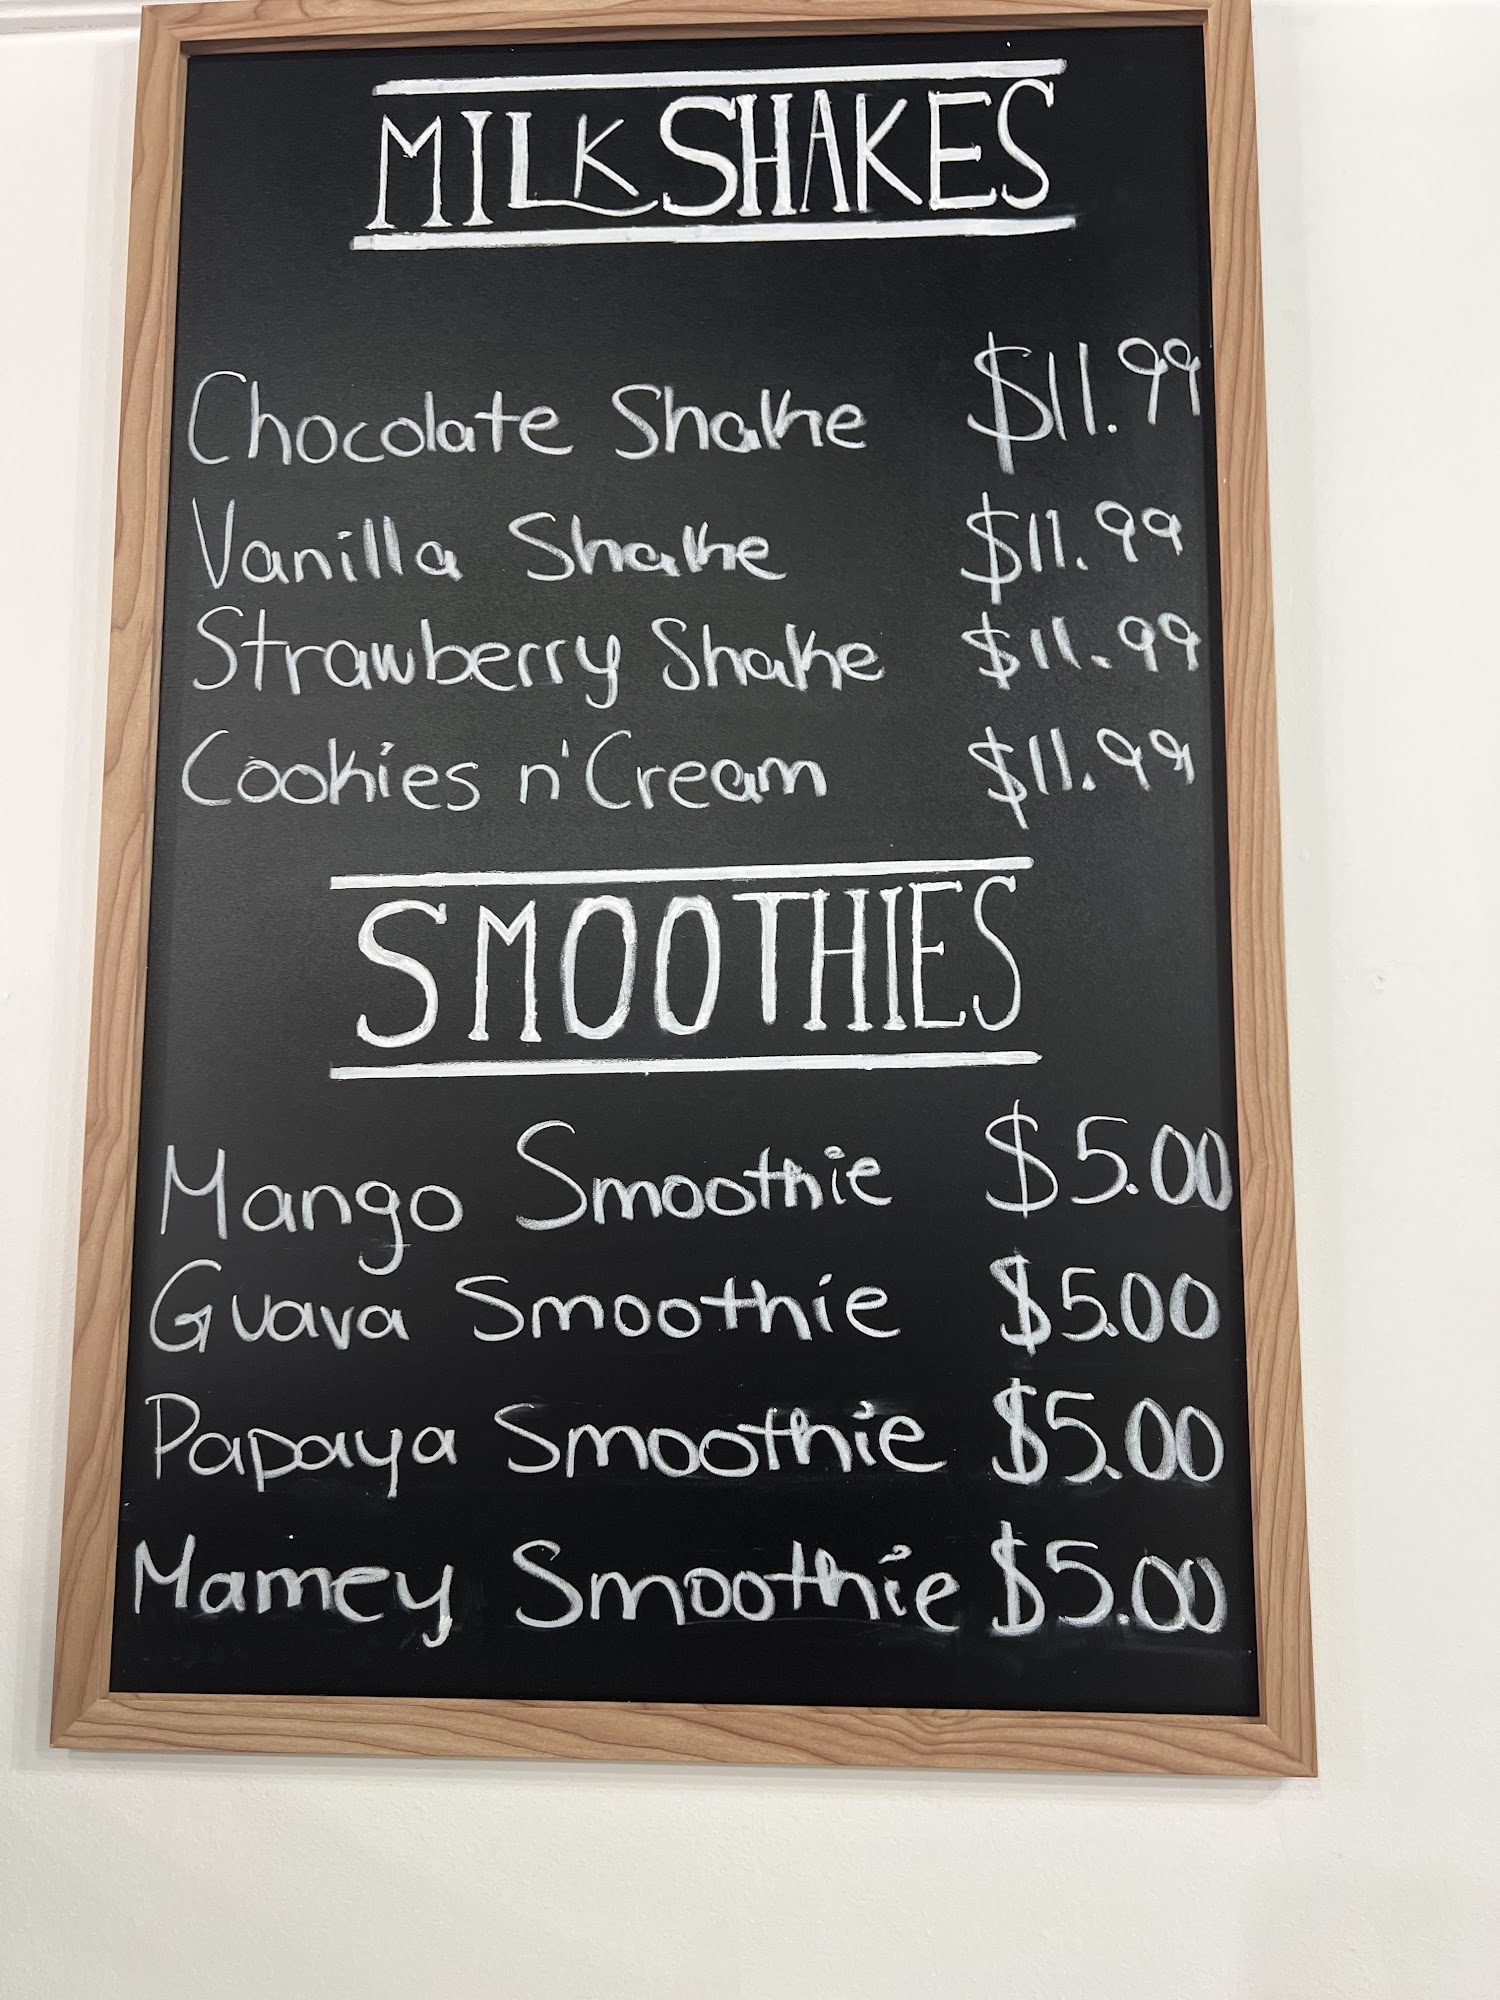 MILKSHAKES
Chocolate Shake $11.99
Vanilla Shake $11.99
Strawberry Shake $11.99
Cookies n' Cream $11.99
SMOOTHIES
Mango Smoothie $5.00
Guava Smoothie $5.00
Papaya Smoothie $5.00
Mamey Smoothie $5.00